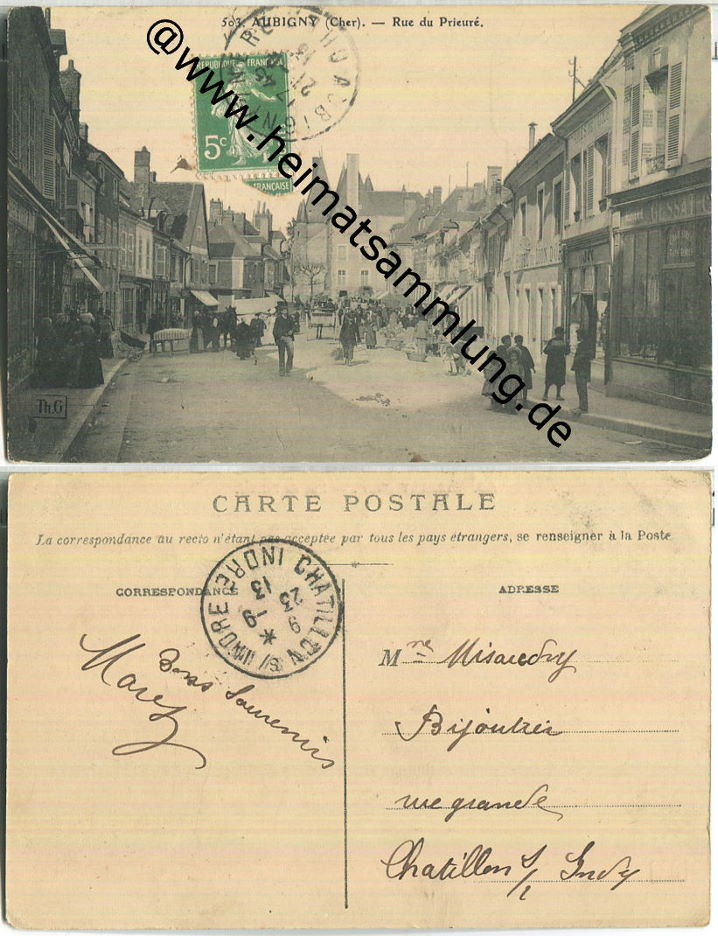 503. AUBIGNY (Cher). — Rue du Prieuré.
@www.heimatsammlung.de
RÉPUBLIQUE FRANÇAISE
5c
FRANÇAISE
Th.G
CARTE POSTALE
La correspondance au recto n'étant pas acceptée par tous les pays étrangers, se renseigner à la Poste
CORRESPONDANCE
ADRESSE
CHATILLON S/ INDRE INDRE
9
23 -9
13
Bons Souvenirs
Mme
Bijoutier
rue grande
Chatillon s/ Indre